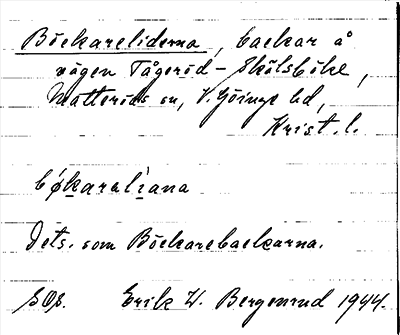 Böckareliderna, backar å
vägen Tågeröd - Skölsböke,
Matteröds sn, V. Göinge hd,
Krist. l.
bø̀karaliana
Dets. som Böckarebackarna.
SOS. Erik W. Bergenrud 1944.